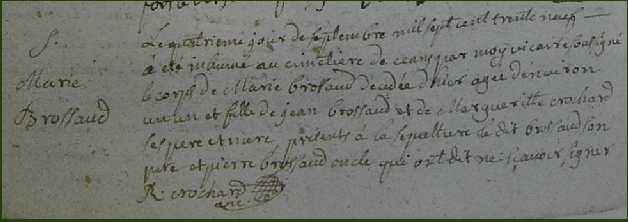 S.
Marie
Brossaud
Le quatrieme jour de septembre mil sept cent trente neuf
a été inhumé au cimetiere de ceans par moy vicaire soussigné
le corps de Marie brossaud decedée d'hier agée denviron
un an et fille de jean brossaud et de Margueritte crochard
ses pere et mere, presents à la sepulture le dit brossaud son
pere et pierre brossaud oncle qui ont dit ne sçavoir signer
R. crochard
vic.